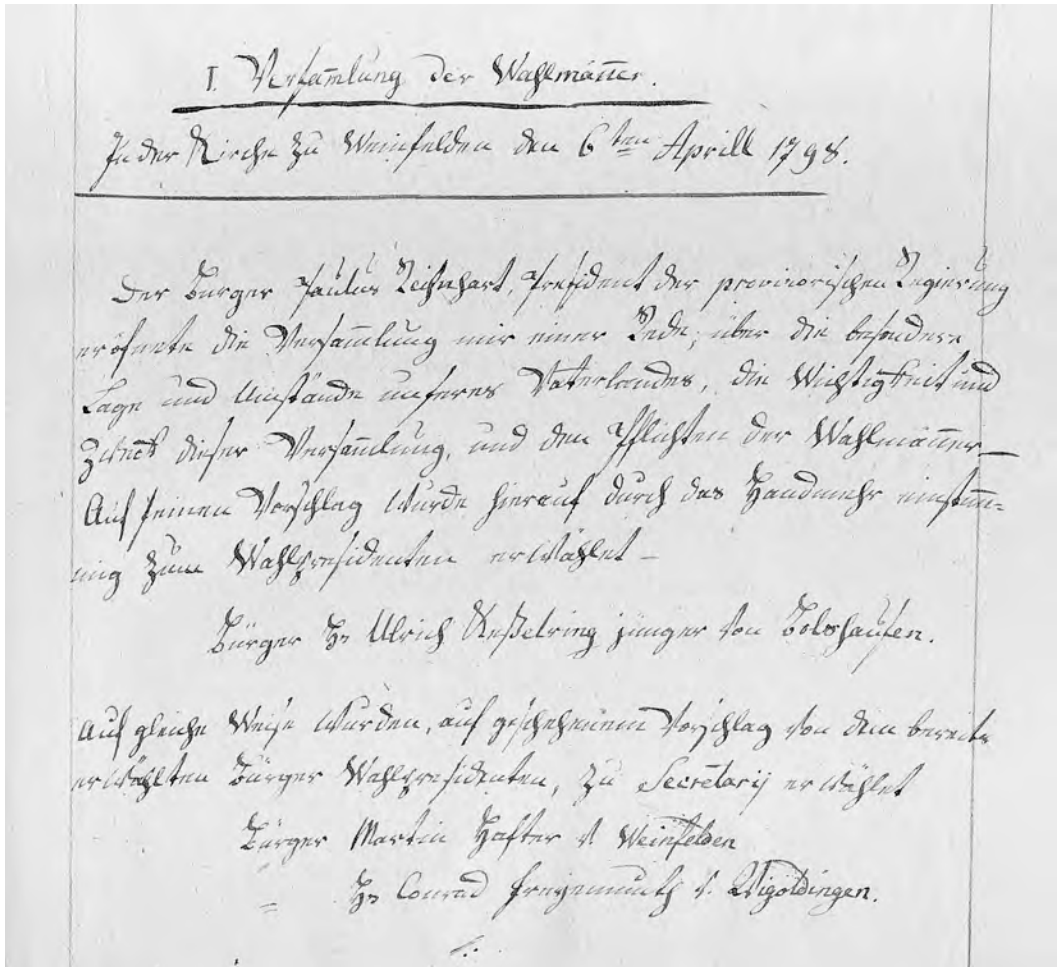 I. Versam̄lung der Wahlmäñer.
In der Kirche zu Weinfelden den 6ten Aprill 1798.
Der Bürger Paulus Reinhart, President der provisorischen Regierung
eröfnete die Versam̄lung mit einer Rede, über die besondere
Lage und Umstände unseres Vaterlandes, die Wichtigkeit und
Zweck dieser Versam̄lung, und den Pflichten der Wahlmäñer_
Auf seinen Vorschlag wurde hierauf durch das Handmehr einstim̄=
mig zum Wahlpresidenten erwählet _
Bürger Hs Ulrich Keßelring jünger von Bolshausen.
Auf gleiche Weise wurden, auf geschehenem Vorschlag von dem bereits
erwählten Bürger Wahlpresidenten, zu Secretarij erwählet
Bürger Martin Hafter v. Weinfelden
= Hs Conrad Freyenmuth v. Wigoldingen.